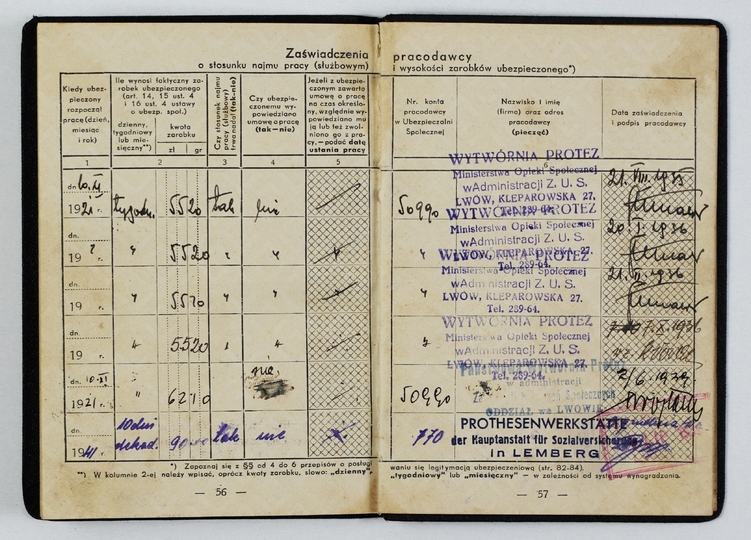 Zaświadczenia
o stosunku najmu pracy (służbowym)
Kiedy ubez-
pieczony
rozpoczął
pracę (dzień,
miesiąc
i rok)
Ile wynosi faktyczny za-
robek ubezpieczonego
(art. 14, 15 ust. 4
i 16 ust. 4 ustawy
o ubezp. społ.)
dzienny,
tygodniowy
lub mie-
sięczny**)
kwota
zarobku
zł gr
Czy stosunek najmu
pracy (służbowy)
trwa nadal (tak-nie)
Czy ubezpie-
czonemu wy-
powiedziano
umowę o pracę
(tak—nie)
Jeżeli z ubezpie-
czonym zawarto
umowę o pracę
na czas określo-
ny, względnie wy-
powiedziano mu
ją lub też zwol-
niono go z pra-
cy, — podać datę
ustania pracy
1 2 3 4 5
dn.
1921 r. tygodn. 5520 tak nie
dn.
19 r. " 5520 " "
19 r. " 5520 " "
dn.
19 r. " 5520 " "
dn. 10.XI nie
1921 r. " 6210
dn. 10 dni
1941 r. dekad. 90.00 tak nie
*) Zapoznaj się z §§ od 4 do 6 przepisów o posługi
**) W kolumnie 2-ej należy wpisać, oprócz kwoty zarobku, słowo: „dzienny",
— 56 —
pracodawcy
i wysokości zarobków ubezpieczonego*)
Nr. konta
pracodawcy
w Ubezpieczalni
Społecznej
Nazwisko i imię
(firma) oraz adres
pracodawcy
(pieczęć)
Data zaświadczenia
i podpis pracodawcy
6
WYTWÓRNIA PROTEZ
Ministerstwa Opieki Społecznej
w Administracji Z. U. S.
LWÓW, KLEPAROWSKA 27.
Tel. 289-64.
50990
21.VIII.1935
WYTWÓRNIA PROTEZ
Ministerstwa Opieki Społecznej
w Administracji Z. U. S.
LWÓW, KLEPAROWSKA 27.
Tel. 289-64.
"
20.I.1936
WYTWÓRNIA PROTEZ
Ministerstwa Opieki Społecznej
w Administracji Z. U. S.
LWÓW, KLEPAROWSKA 27.
Tel. 289-64.
"
1936
WYTWÓRNIA PROTEZ
Ministerstwa Opieki Społecznej
w Administracji Z. U. S.
LWÓW, KLEPAROWSKA 27.
Tel. 289-64.
7.X.1936
w administracji
Społecznych
ODDZIAŁ we LWOWIE
50990
2/6.1939
PROTHESENWERKSTÄTTE
der Hauptanstalt für Sozialversicherung
in LEMBERG
770
waniu się legitymacją ubezpieczeniową (str. 82-84).
„tygodniowy" lub „miesięczny" — w zależności od systemu wynagradzania.
— 57 —